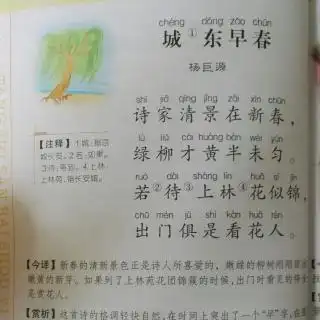 chéng dōng zǎo chūn
城①东早春
杨巨源
shī jiā qīng jǐng zài xīn chūn
诗家清景在新春，
lǜ liǔ cái huáng bàn wèi yún
绿柳才黄半未匀。
ruò dài shàng lín huā sì jǐn
若②待③上林④花似锦，
chū mén jù shì kàn huā rén
出门俱是看花人。
【注释】1.城：指
城长安。2.若：如果。
3.待：等到。4.上林：
上林苑，指长安城。
【今译】新春的清新景色正是诗人所喜爱的，嫩绿的柳树刚刚
嫩黄的新芽。如果到了上林苑花团锦簇的时候，出门时看见的
是赏花人。
【赏析】这首诗的格调轻快自然，在时间上突出了一个“早”字，在